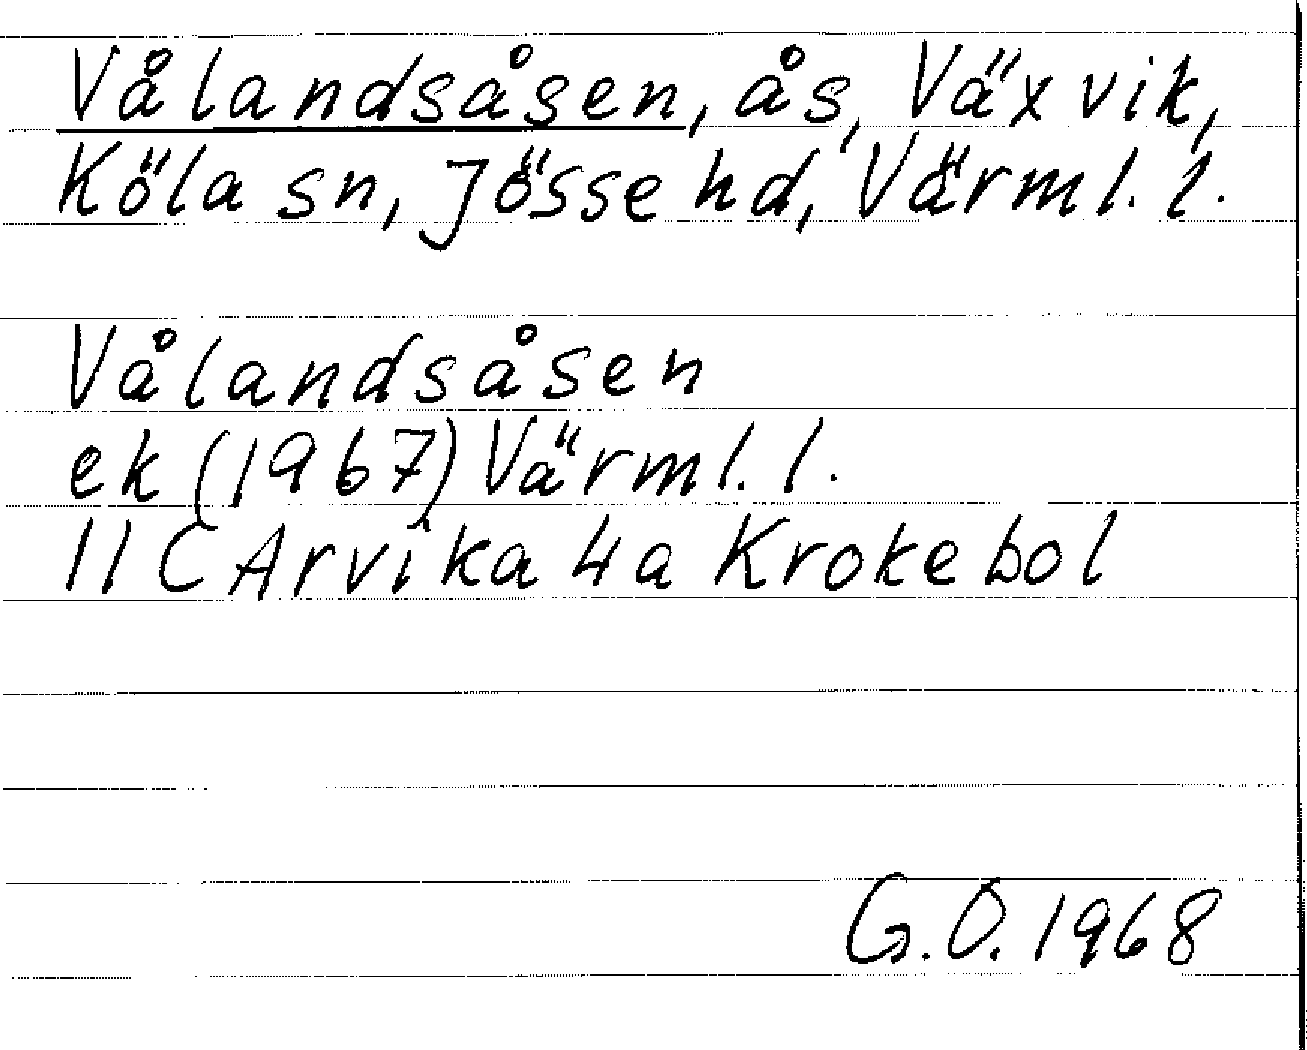 Vålandsåsen, ås, Växvik,
Köla sn, Jösse hd, Värml. l.
Vålandsåsen
ek (1967) Värml. l.
11 C Arvika 4a Krokebol
G.O. 1968